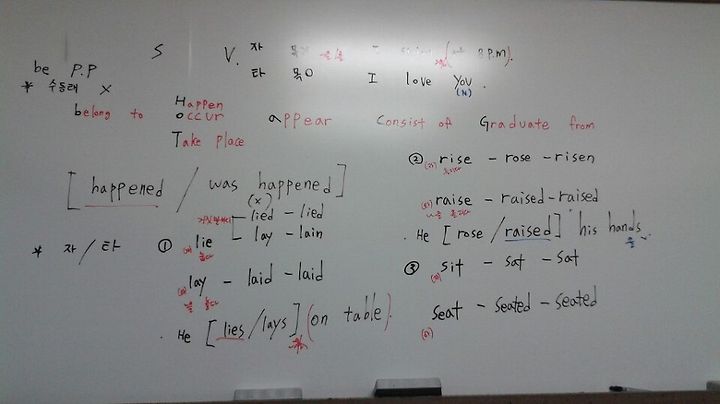 S V. 자 목X
타 목O
I love You.
(N)
8 P.M).
be P.P
* 수동태 X
belong to Happen appear Consist of Graduate from
occur
Take place
[ happened / was happened ]
(X)
* 자 / 타
① lie
lied - lied
lay - lain
lay - laid - laid
. He [ lies / lays ] (on table).
② (자) rise - rose - risen
(타) raise - raised - raised
. He [ rose / raised ] his hands
을
③ (자) sit - sat - sat
(타) seat - seated - seated